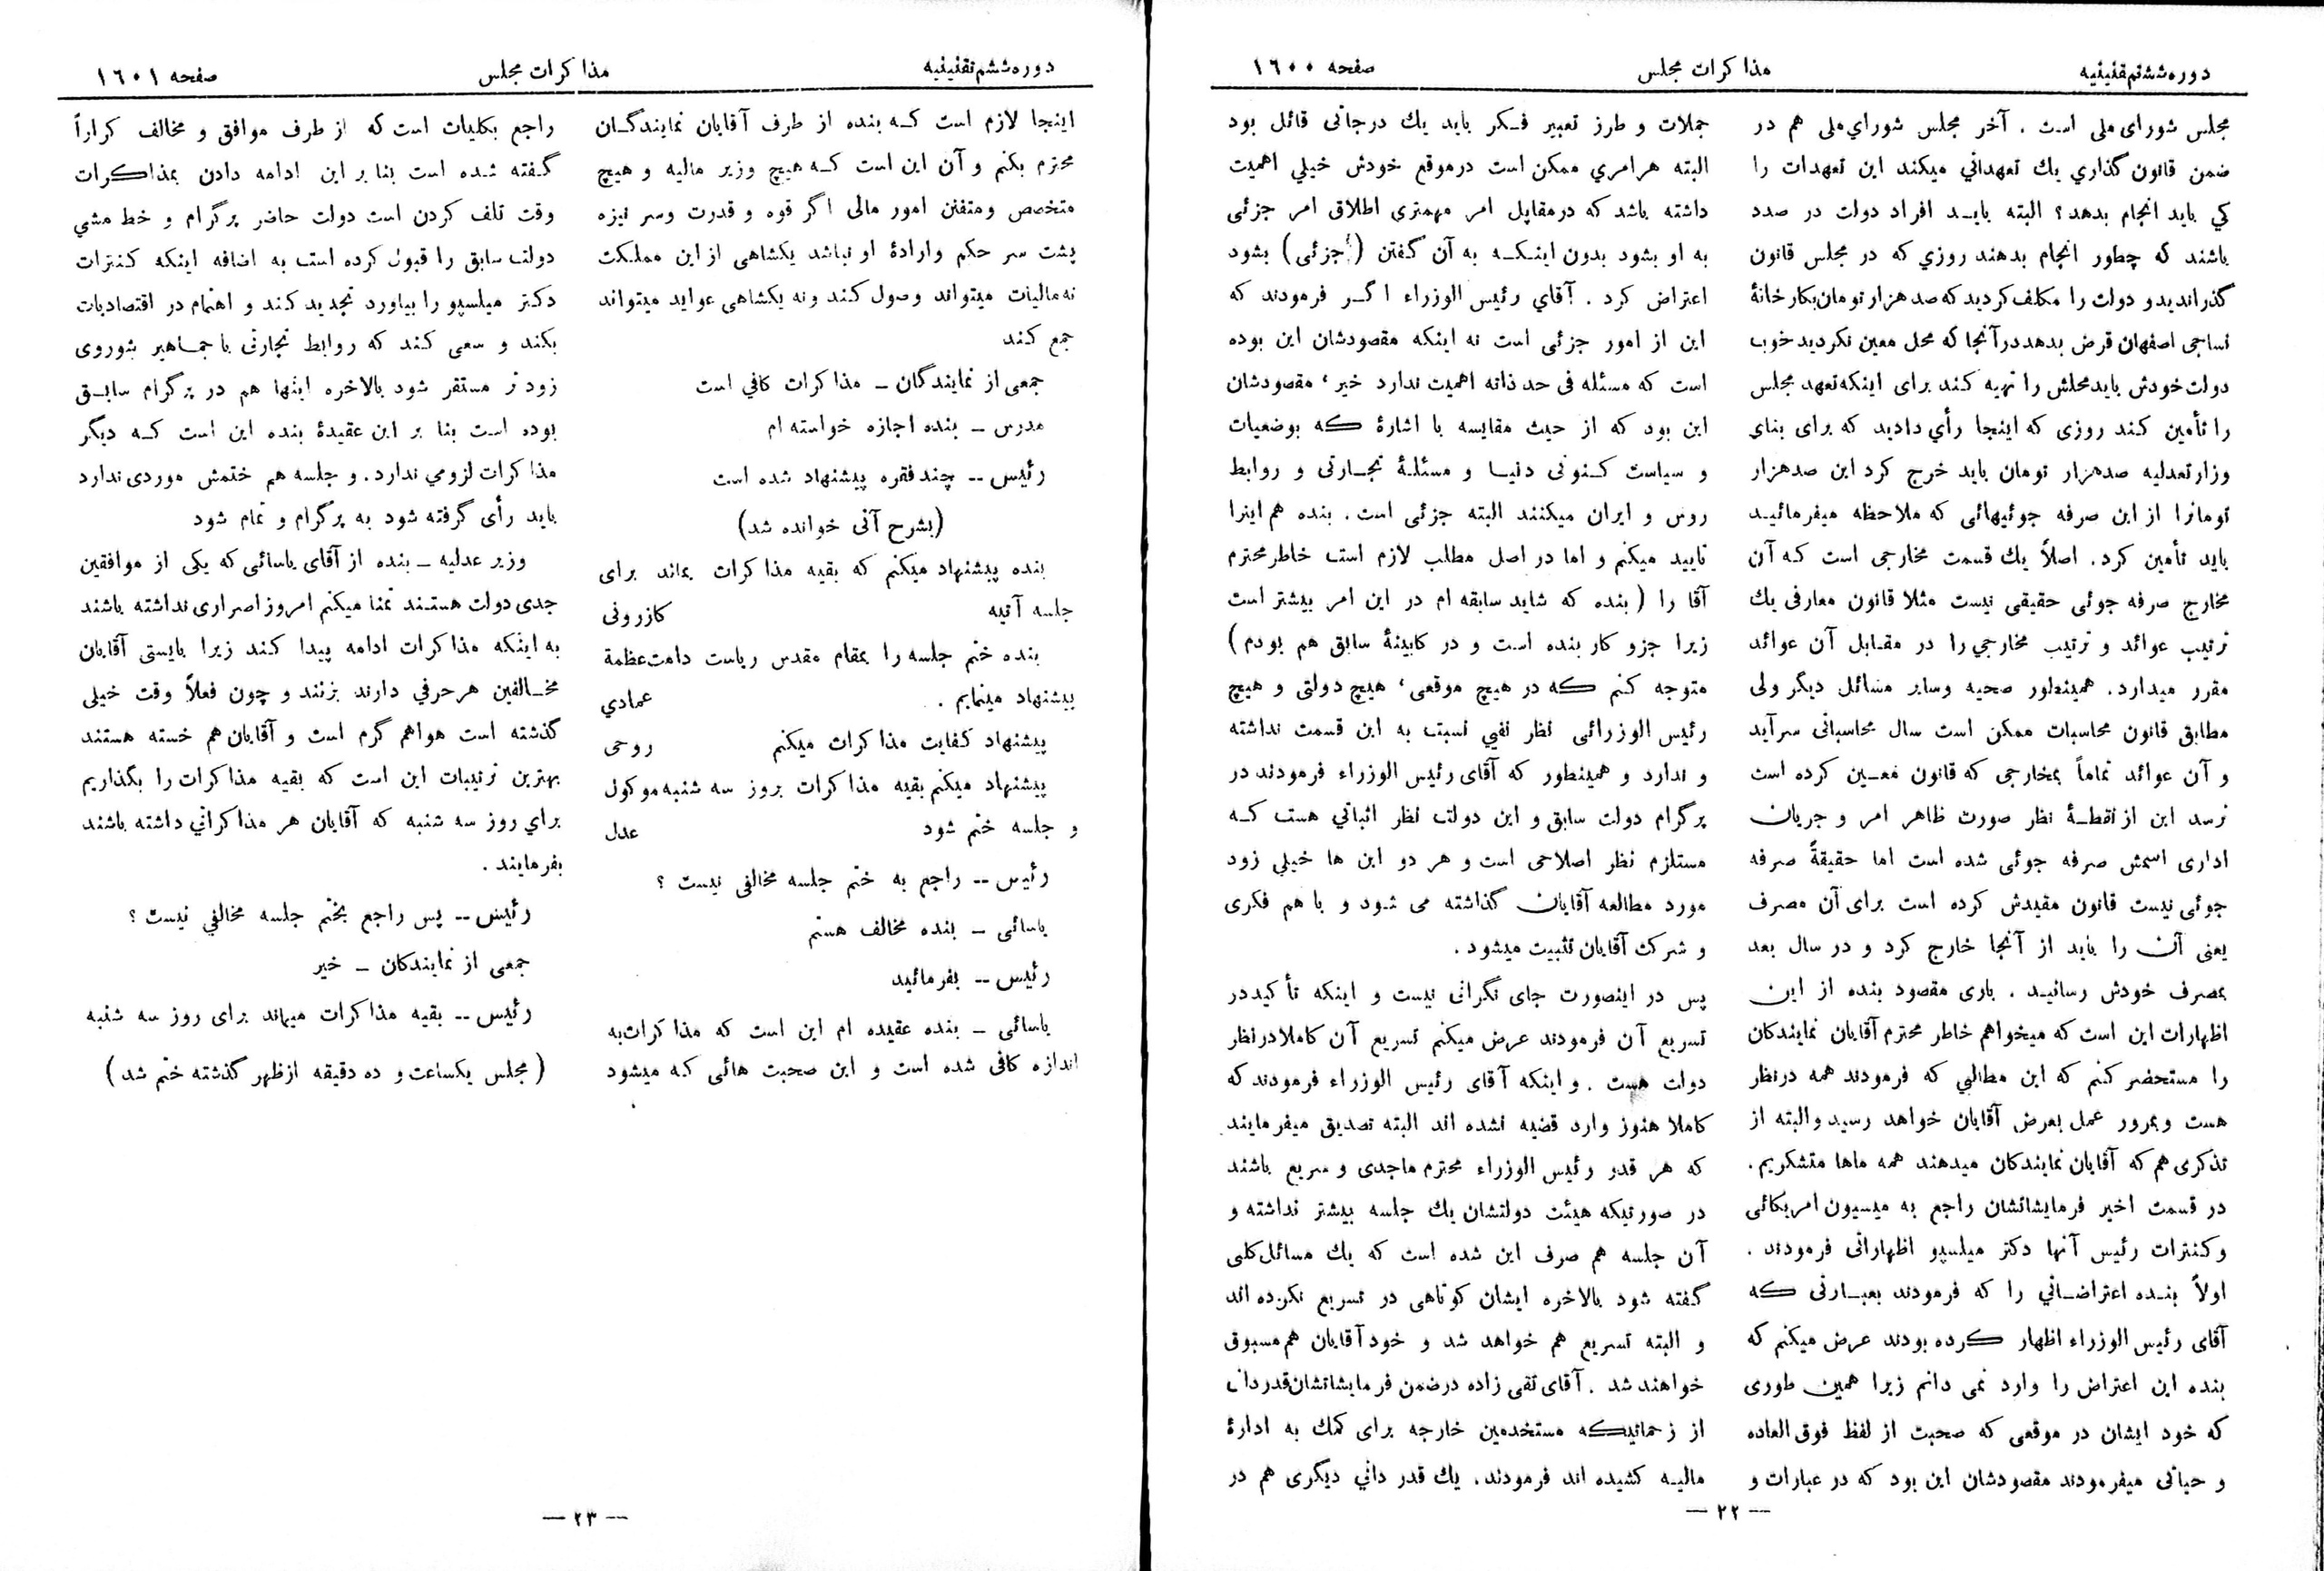 دوره ششم تقنینیه
مذاکرات مجلس
صفحه ١٦٠٠
مجلس شورای ملی است . آخر مجلس شوراي ملی هم در
ضمن قانون گذاري یك تعهداتي میکند این تعهدات را
کي باید انجام بدهد ؟ البته بایـد افراد دولت در صدد
باشند که چطور انجام بدهند روزي که در مجلس قانون
گذراندید و دولت را مکلف کردید که صد هزار تومان بکارخانهٔ
نساجی اصفهان قرض بدهد در آنجا که محل معین نکردید خوب
دولت خودش باید محلش را تهیه کند برای اینکه تعهد مجلس
را تأمین کند روزی که اینجا رأی دادید که برای بنای
وزارتعدلیه صدهزار تومان باید خرج کرد این صدهزار
تومانرا از این صرفه جوئیهائی که ملاحظه میفرمائیـد
باید تأمین کرد . اصلاً یك قسمت مخارجی است کـه آن
مخارج صرفه جوئی حقیقی نیست مثلا قانون معارفی یك
ترتیب عوائد و ترتیب مخارجي را در مقـابل آن عوائد
مقرر میدارد . همینطور صحیه وسایر مسائل دیگر ولی
مطابق قانون محاسبات ممکن است سال محاسباتی سرآید
و آن عوائد تماماً بمخارجی که قانون معـین کرده است
نرسد این از نقطـهٔ نظر صورت ظاهر امر و جریان
اداری اسمش صرفه جوئی شده است اما حقیقةً صرفه
جوئی نیست قانون مقیدش کرده است برای آن مصرف
یعنی آن را باید از آنجا خارج کرد و در سال بعد
بمصرف خودش رسانیـد . باری مقصود بنده از این
اظهارات این است که میخواهم خاطر محترم آقایان نمایندکان
را مستحضر کنم که این مطالبي که فرمودند همه درنظر
هست وبمرور عمل بعرض آقایان خواهد رسید والبته از
تذکری هم که آقایان نمایندکان میدهند همه ماها متشکریم .
در قسمت اخیر فرمایشاتشان راجع به میسیون امریکائی
وکنترات رئیس آنها دکتر میلسپو اظهاراتی فرمودند .
اولاً بنـده اعتراضـاتي را که فرمودند بعبـارتی که
آقای رئیس الوزراء اظهار کرده بودند عرض میکنم که
بنده این اعتراض را وارد نمی دانم زیرا همین طوری
که خود ایشان در موقعی که صحبت از لفظ فوق العاده
و حیاتی میفرمودند مقصودشان این بود که در عبارات و
جملات و طرز تعبیر فـکر باید یك درجاتی قائل بود
البته هر امري ممکن است درموقع خودش خیلي اهمیت
داشته باشد که درمقابل امر مهمتری اطلاق امر جزئی
به او بشود بدون اینـکـه به آن گفتن ( جزئی ) بشود
اعتراض کرد . آقاي رئیس الوزراء اگـر فرمودند که
این از امور جزئی است نه اینکه مقصودشان این بوده
است که مسئله فی حد ذاته اهمیت ندارد خیر ، مقصودشان
این بود که از حیث مقایسه با اشارهٔ که بوضعیات
و سیاست کـنونی دنیـا و مسئلهٔ تجـارتی و روابط
روس و ایران میکنند البته جزئی است . بنده هم اینرا
تایید میکنم و اما در اصل مطلب لازم است خاطر محترم
آقا را ( بنده که شاید سابقه ام در این امر بیشتر است
زیرا جزو کار بنده است و در کابینهٔ سابق هم بودم )
متوجه کنم که در هیچ موقعی ، هیچ دولتی و هیچ
رئیس الوزرائی نظر نفیي نسبت به این قسمت نداشته
و ندارد و همینطور که آقای رئیس الوزراء فرمودند در
پرگرام دولت سابق و این دولت نظر اثباتي هست کـه
مستلزم نظر اصلاحی است و هر دو این ها خیلي زود
مورد مطالعه آقایان گذاشته می شود و با هم فکری
و شرکت آقایان تثبیت میشود .
پس در اینصورت جای نگرانی نیست و اینکه تأکید در
تسریع آن فرمودند عرض میکنم تسریع آن کاملا درنظر
دولت هست . و اینکه آقای رئیس الوزراء فرمودند که
کاملا هنوز وارد قضیه نشده اند البته تصدیق میفرمایند
که هر قدر رئیس الوزراء محترم ماجدی و سریع باشند
در صورتیکه هیئت دولتشان یك جلسه بیشتر نداشته و
آن جلسه هم صرف این شده است که یك مسائل کلی
گفته شود بالاخره ایشان کوتاهی در تسریع نکرده اند
و البته تسریع هم خواهد شد و خود آقایان هم مسبوق
خواهند شد . آقای تقی زاده درضمن فرمایشاتشان قدردانی
از زحماتیکه مستخدمین خارجه برای کمك به ادارهٔ
مالیـه کشیده اند فرمودند . یك قدر داني دیگری هم در
— ٢٢ —
دوره ششم تقنینیه
مذاکرات مجلس
صفحه ١٦٠١
اینجا لازم است کـه بنده از طرف آقایان نمایندگـان
محترم بکنم و آن این است کـه هیچ وزیر مالیه و هیچ
متخصص ومتفنن امور مالی اگر قوه و قدرت وسر نیزه
پشت سر حکم وارادهٔ او نباشد یکشاهی از این مملکت
نه مالیات میتواند وصول کند ونه یکشاهی عواید میتواند
جمع کند
جمعی از نمایندگان ـ مذاکرات کافي است
مدرس ـ بنده اجازه خواسته ام
رئیس -- چند فقره پیشنهاد شده است
(بشرح آتی خوانده شد)
بنده پیشنهاد میکنم که بقیه مذاکرات بماند برای
جلسه آتیه کازرونی
بنده ختم جلسه را بمقام مقدس ریاست دامت عظمة
پیشنهاد مینمایم . عمادي
پیشنهاد کفایت مذاکرات میکنم روحی
پیشنهاد میکنم بقیه مذاکرات بروز سه شنبه موکول
و جلسه ختم شود عدل
رئیس -- راجع به ختم جلسه مخالفی نیست ؟
یاسائی ـ بنده مخالف هستم
رئیس -- بفرمائید
یاسائی ـ بنده عقیده ام این است که مذاکرات به
اندازه کافی شده است و این صحبت هائی که میشود
راجع بکلیات است که از طرف موافق و مخالف کراراً
گفته شده است بنا بر این ادامه دادن بمذاکرات
وقت تلف کردن است دولت حاضر پرگرام و خط مشي
دولت سابق را قبول کرده است به اضافه اینکه کنترات
دکتر میلسپو را بیاورد تجدید کند و اهتمام در اقتصادیات
بکند و سعی کند که روابط تجارتی با جمـاهیر شوروی
زودتر مستقر شود بالاخره اینها هم در پرگرام سابـق
بوده است بنا بر این عقیدهٔ بنده این است کـه دیگر
مذاکرات لزومي ندارد . و جلسه هم ختمش موردی ندارد
باید رأی گرفته شود به پرگرام و تمام شود
وزیر عدلیه ـ بنده از آقای یاسائی که یکی از موافقین
جدی دولت هستـند تمنا میکنم امروز اصراری نداشته باشند
به اینکه مذاکرات ادامه پیدا کند زیرا بایستی آقایان
مخـالفین هر حرفي دارند بزنند و چون فعلاً وقت خیلی
گذشته است هوا هم گرم است و آقایان هم خسته هستند
بهترین ترتیبات این است که بقیه مذاکرات را بگذاریم
براي روز سه شنبه که آقایان هر مذاکراتي داشته باشند
بفرمایند .
رئیس -- پس راجع بختم جلسه مخالفي نیست ؟
جمعی از نمایندکان ـ خیر
رئیس -- بقیه مذاکرات میماند برای روز سه شنبه
( مجلس یکساعت و ده دقیقه از ظهر گذشته ختم شد )
— ٢٣ —